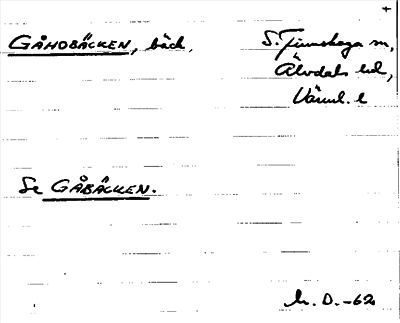 GÅHOBÄCKEN, bäck, S. Finnskoga sn,
Älvdals hd,
Värml. l
Se GÅBÄCKEN.
D. -62